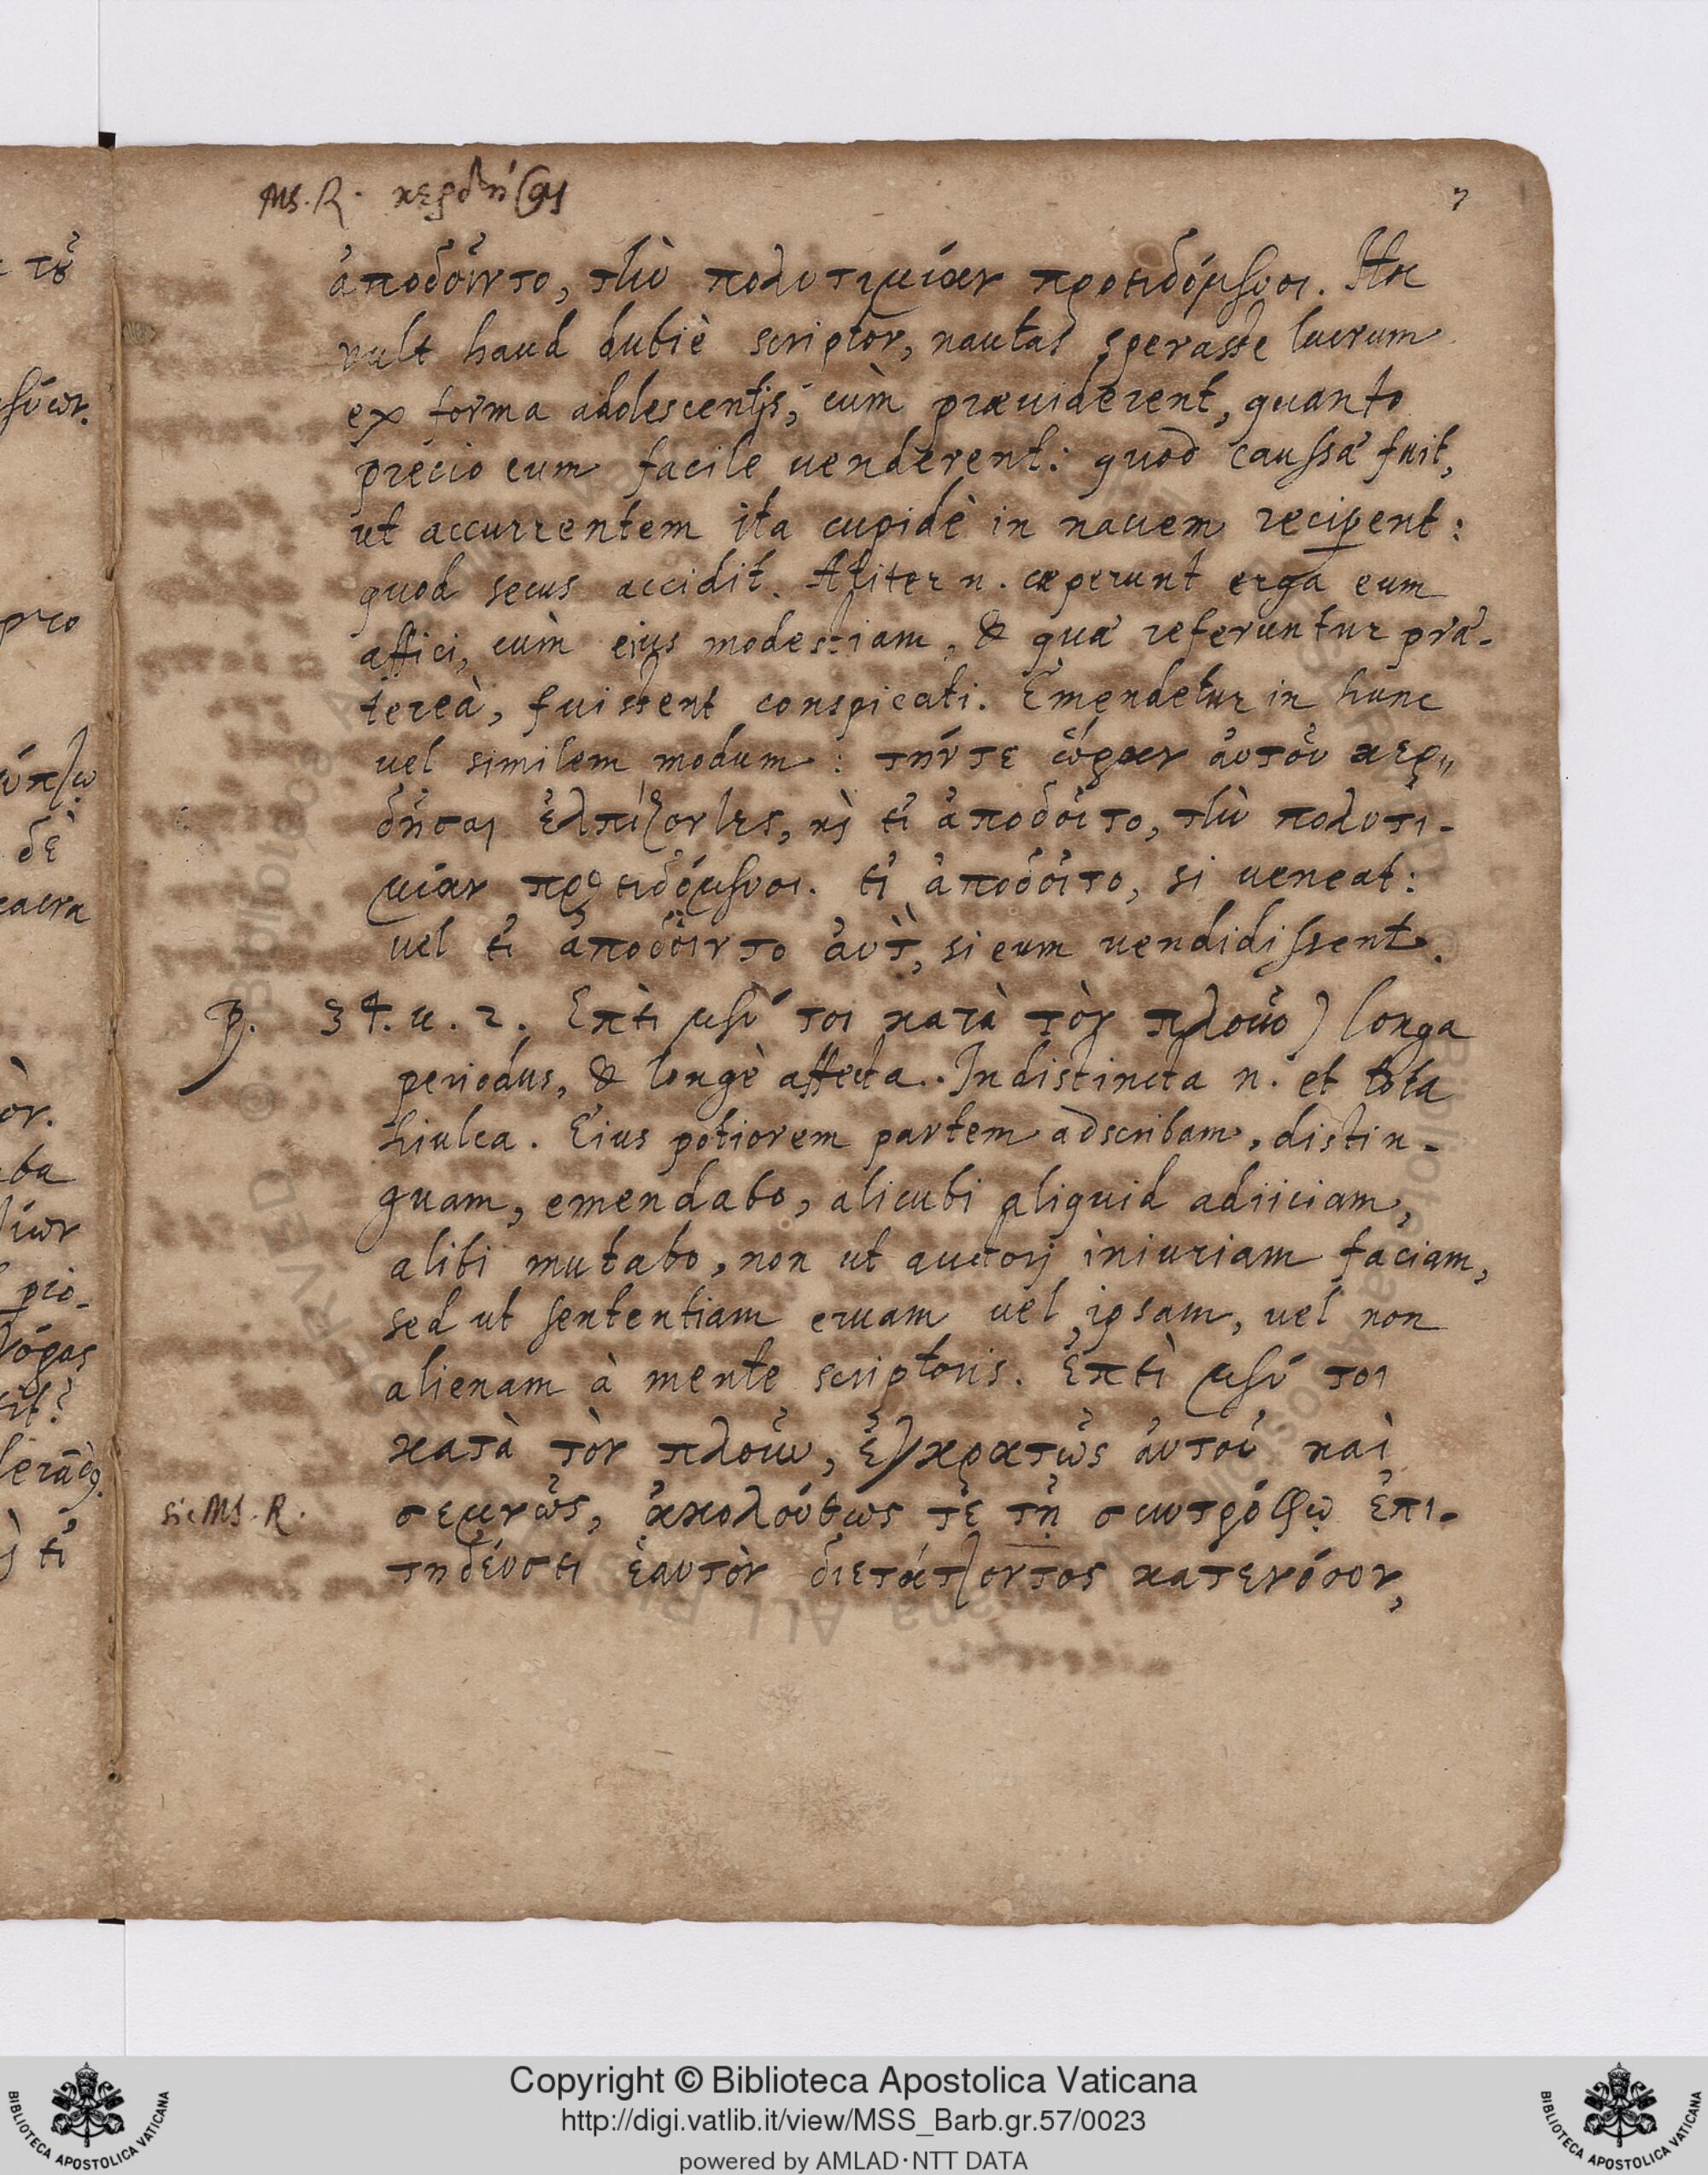 Ms. R. κερδήσαι
7
ἀποδοῖντο, τὴν πολυτιμίαν προειδόμενοι. Hoc
vult haud dubiè scriptor, nautas sperasse lucrum
ex forma adolescentis, cùm præuiderent, quanto
precio eum facile uenderent: quod caussa fuit,
ut accurrentem ita cupidè in nauem reciperent:
quod secus accidit. Aliter n. cæperunt erga eum
affici, cùm eius modestiam, & quæ referuntur præ-
tereà, fuissent conspicati. Emendetur in hunc
uel similem modum: τήν τε ὥραν αὐτοῦ κερ„
δῆσαι ἐλπίζοντες, κὶ εἰ ἀποδοῖτο, τὴν πολυτι-
μίαν προειδόμενοι. εἰ ἀποδοῖτο, si ueneat:
uel εἰ ἀποδοῖντο αὐτ̀, si eum uendidissent.
p. 34. u. 2. Επεὶ μέν τοι κατὰ τὸν πλοῦν) longa
periodus, & longè affecta. Indistincta n. et tota
hiulca. Eius potiorem partem adscribam, distin-
guam, emendabo, alicubi aliquid adiiciam,
alibi mutabo, non ut auctori iniuriam faciam,
sed ut sententiam eruam uel ipsam, uel non
alienam à mente scriptoris. Επεὶ μέν τοι
κατὰ τὸν πλοῦν, ἐγκρατῶς αὐτοῦ καὶ
sic Ms. R. σεμνῶς, ἀκολούθως τε τῇ συντρόφῳ ἐπι-
τηδεύσει ἑαυτὸν διετάττοντος κατενόουν,
Copyright © Biblioteca Apostolica Vaticana
http://digi.vatlib.it/view/MSS_Barb.gr.57/0023
powered by AMLAD·NTT DATA
BIBLIOTECA APOSTOLICA VATICANA
BIBLIOTECA APOSTOLICA VATICANA